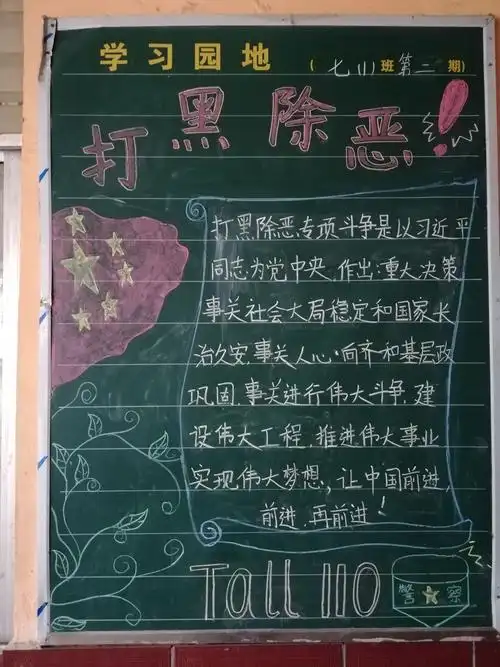 学习园地 （七(1)班第二期）
打黑除恶！
打黑除恶专项斗争是以习近平
同志为党中央，作出重大决策
事关社会大局稳定和国家长
治久安，事关人心向齐和基层政
巩固，事关进行伟大斗争，建
设伟大工程，推进伟大事业
实现伟大梦想，让中国前进，
前进，再前进！
Tall 110
警察